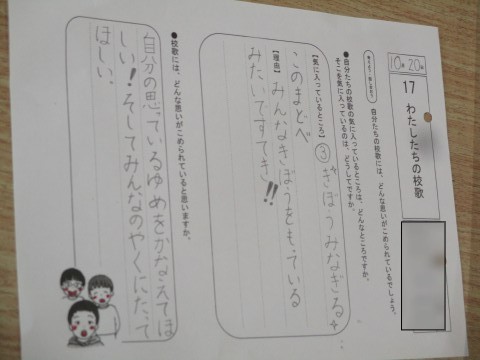 10月20日
17 わたしたちの校歌
自分たちの校歌には、どんな思いがこめられているでしょう。
●自分たちの校歌の気に入っているところは、どんなところですか。
そこを気に入っているのは、どうしてですか。
【気に入っているところ】
③ぎぼうみなぎる
このまどべ
【理由】みんなきぼうをもっている
みたいですてき!!
●校歌には、どんな思いがこめられていると思いますか。
自分の思っているゆめをかなえてほ
しい!そしてみんなのやくにたって
ほしい。